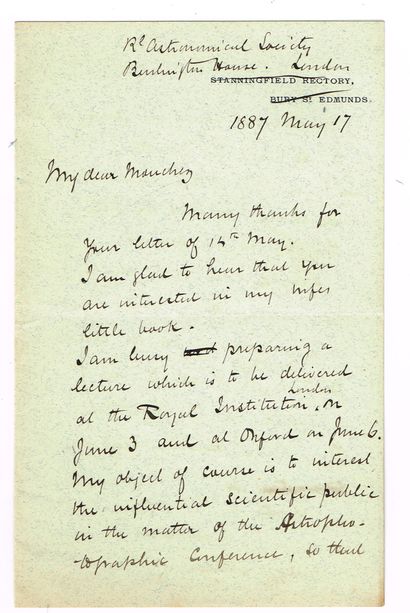 Rl Astronomical Society
Burlington House. London
STANNINGFIELD RECTORY,
BURY St EDMUNDS.
1887 May 17
My dear Mouchez
Many thanks for
your letter of 14th May.
I am glad to hear that you
are interested in my wifes
little book.
I am busy preparing a
lecture which is to be delivered
at the Royal Institution, London on
June 3 and at Oxford on June 6.
My object of course is to interest
the influential scientific public
in the matter of the Astropho-
tographic Conference, so that